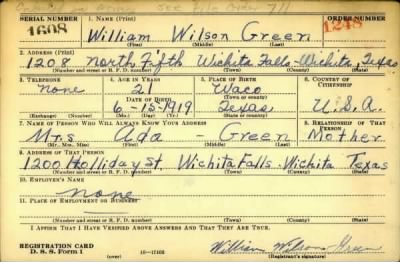 See File Order 711
SERIAL NUMBER 1. NAME (Print) ORDER NUMBER
1608 William Wilson Green 1248
(First) (Middle) (Last)
2. ADDRESS (Print)
1208 North Fifth Wichita Falls - Wichita, Texas
(Number and street or R. F. D. number) (Town) (County) (State)
3. TELEPHONE 4. AGE IN YEARS 5. PLACE OF BIRTH 6. COUNTRY OF CITIZENSHIP
None 21 Waco
DATE OF BIRTH (Town or county)
6-15-1919 Texas U.S.A.
(Exchange) (No.) (Mo.) (Day) (Yr.) (State or country)
7. NAME OF PERSON WHO WILL ALWAYS KNOW YOUR ADDRESS 8. RELATIONSHIP OF THAT PERSON
Mrs Ada - Green Mother
(Mr., Mrs., Miss) (First) (Middle) (Last)
9. ADDRESS OF THAT PERSON
1200 Holliday St. Wichita Falls - Wichita Texas
(Number and street or R. F. D. number) (Town) (County) (State)
10. EMPLOYER'S NAME
None
11. PLACE OF EMPLOYMENT OR BUSINESS
(Number and street or R. F. D. number) (Town) (County) (State)
I AFFIRM THAT I HAVE VERIFIED ABOVE ANSWERS AND THAT THEY ARE TRUE.
REGISTRATION CARD
D. S. S. FORM 1 (over) 16-17105 William Wilson Green
(Registrant's signature)